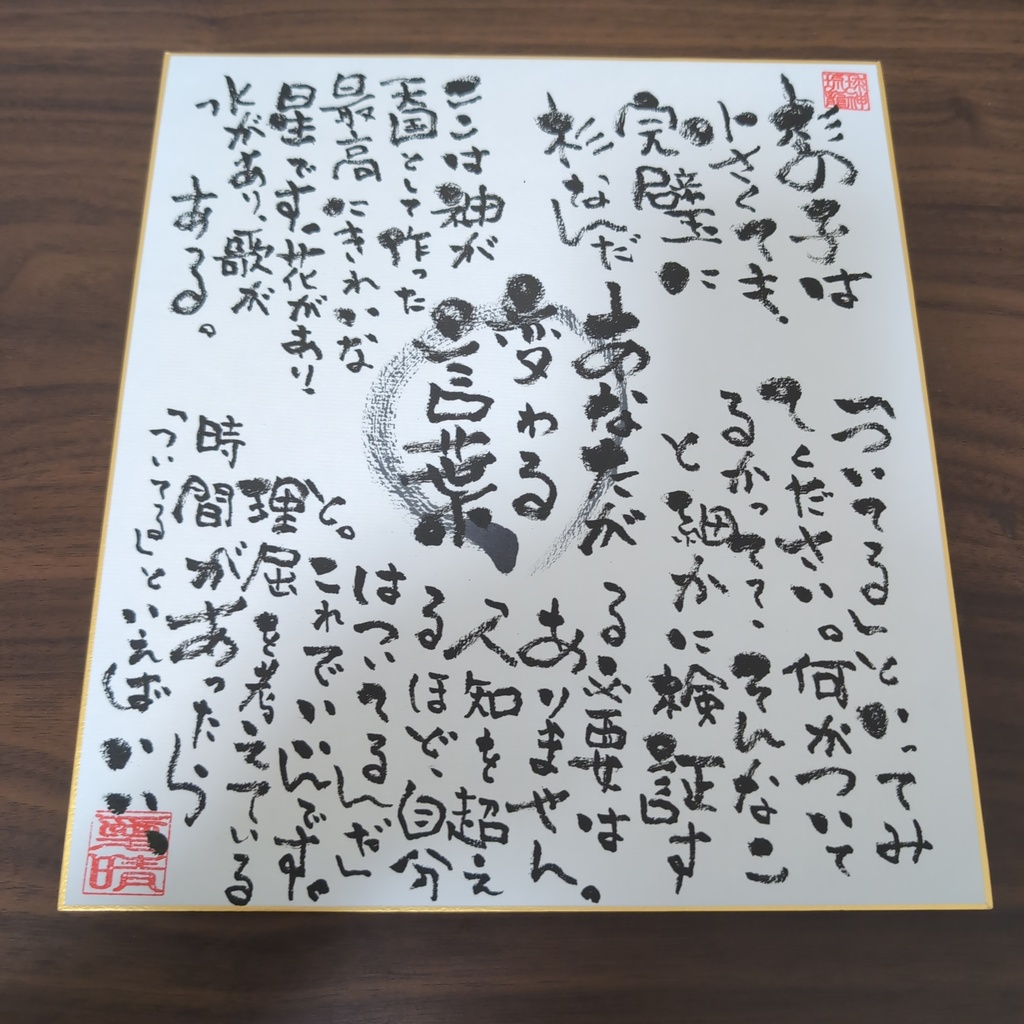 杉の子は
小さくても、
完璧に
杉なんだ
あなたが
変わる
言葉
ここは神が
天国として作った
最高にきれいな
星です。花があり、
水があり、歌が
ある。
「ついてる」といってみ
てください。何がついて
るかって、そんなこ
と細かに検証す
る必要は
ありません。
人知を超え
るほど、自分
はついてるんだ」
と。これでいいんです。
理屈を考えている
時間があったら
「ついてる」といえばいい。